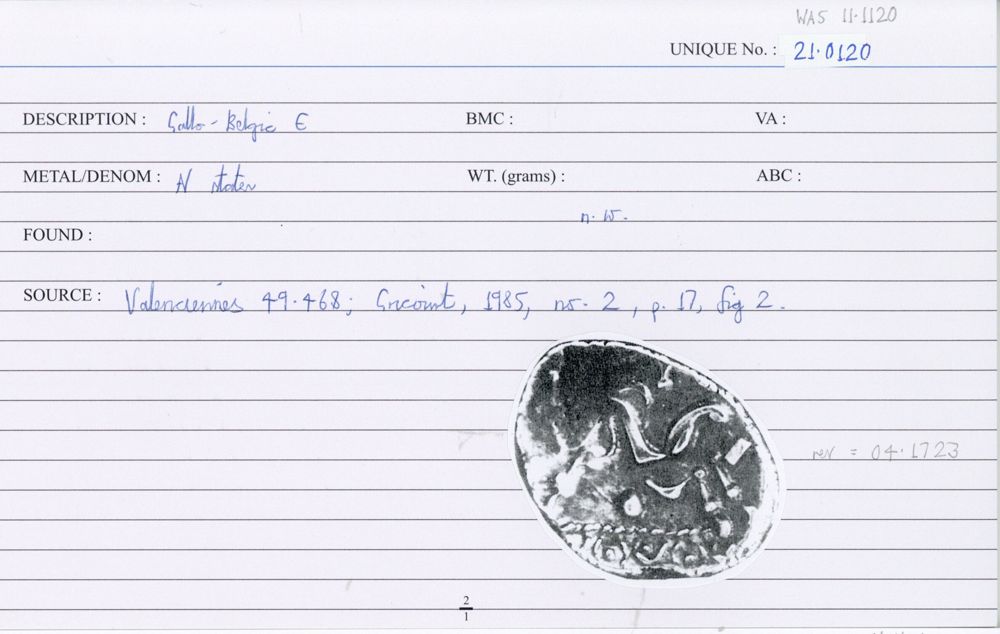 WAS 11.1120
UNIQUE No. : 21.0120
DESCRIPTION : Gallo-Belgic E BMC : VA :
METAL/DENOM : N stater WT. (grams) : ABC :
n.w.
FOUND :
SOURCE : Valenciennes 49.468; Gricourt, 1985, no. 2, p. 17, fig 2.
rev = 04.1723
2
1